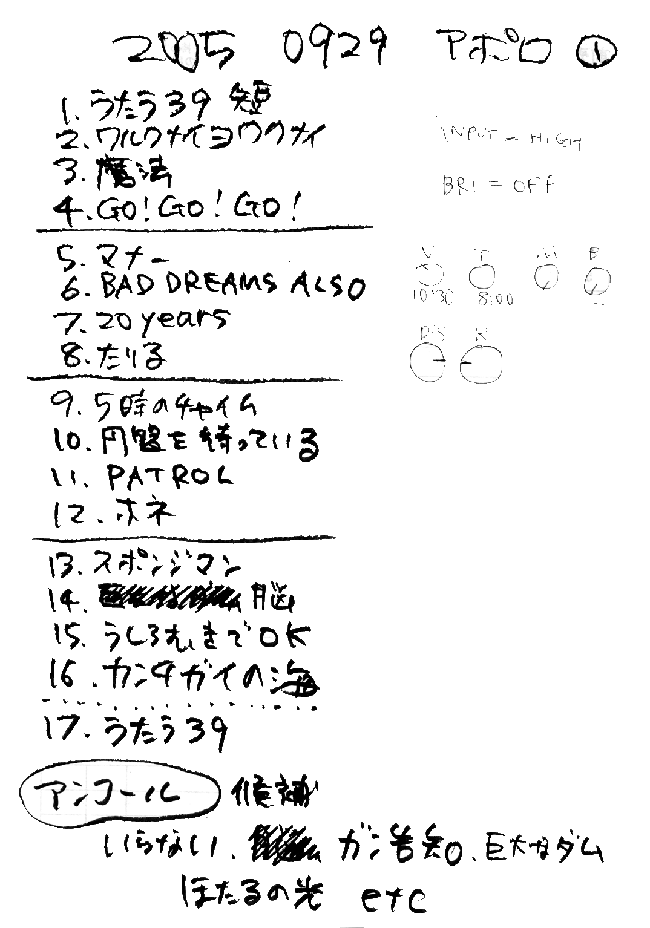 2005 0929 アポロ ①
1. うたう39 短
2. ワルクナイヨワクナイ
3. 魔法
4. GO! GO! GO!
5. マナー
6. BAD DREAMS ALSO
7. 20 years
8. たりる
9. 5時のチャイム
10. 円盤を待っている
11. PATROL
12. ホネ
13. スポンジマン
14. 脳
15. うしろむきでOK
16. カンタガイの海
17. うたう39
アンコール 候補
いらない、ガン告知、巨大なダム
ほたるの光 etc
INPUT = HIGH
BRI = OFF
V T M B
10:30 8:00